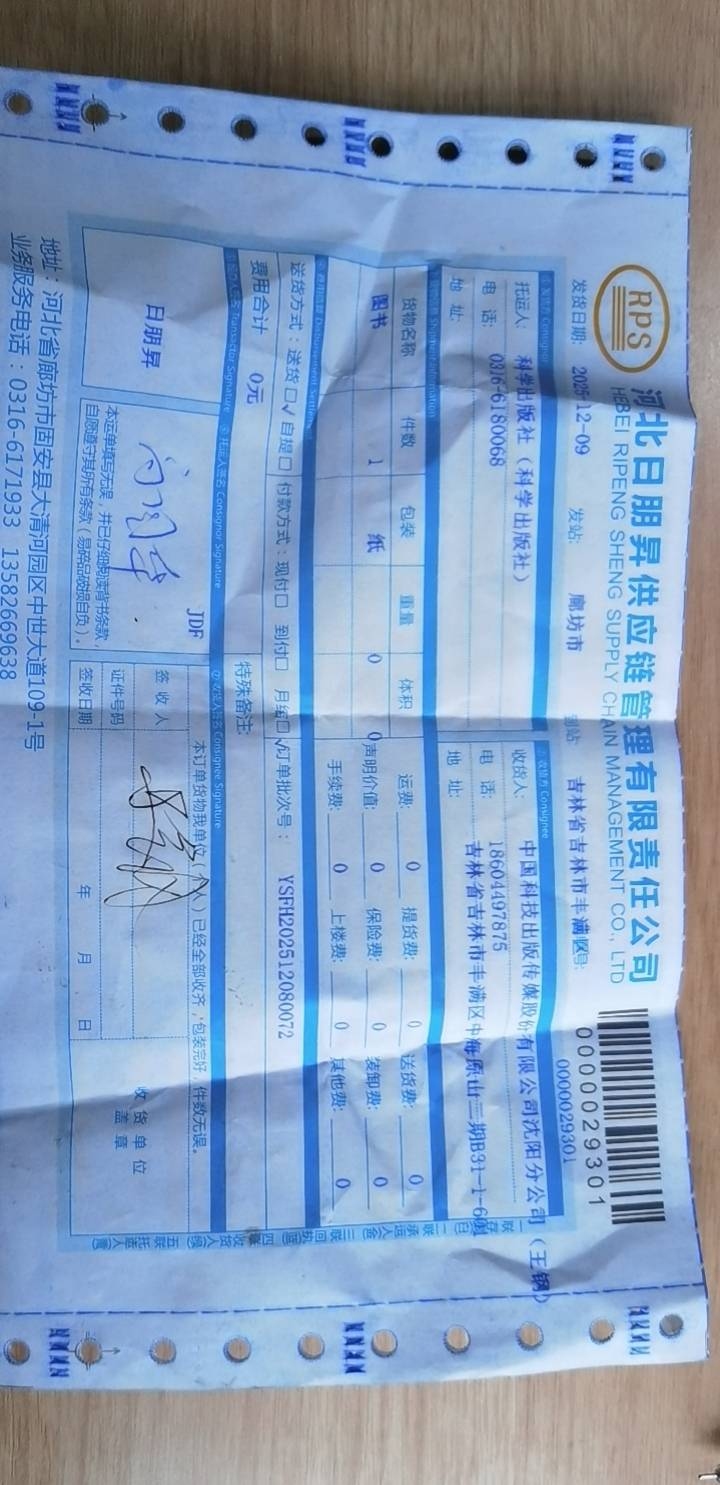 RPS
河北日朋昇供应链管理有限责任公司
HEBEI RIPENG SHENG SUPPLY CHAIN MANAGEMENT CO., LTD
0000029301
发货日期: 2025-12-09 发站: 廊坊市 到站: 吉林省吉林市丰满区 0000029301
托运人: 科学出版社（科学出版社）
电 话: 0316-6180068
地 址:
收货人: 中国科技出版传媒股份有限公司沈阳分公司（王钢）
电 话: 18604497875
地 址: 吉林省吉林市丰满区中海原山二期B31-1-601
货物名称 件数 包装 重量 体积
图书 1 纸 0 0
运费: 0 提货费: 0 送货费: 0
声明价值: 0 保险费: 0 装卸费: 0
手续费: 0 上楼费: 0 其他费: 0
送货方式: 送货□√ 自提□ 付款方式: 现付□ 到付□ 月结□√ 订单批次号: YSFH202512080072
费用合计 0元
特殊备注:
Transactor Signature
Consignor Signature
Consignee Signature
日朋昇
JDF
本运单填写无误，并已仔细阅读背书条款，
自愿遵守其所有条款（易碎品破损自负）。
本订单货物我单位（个人）已经全部收齐，包装完好，件数无误。
签收人
证件号码
签收日期 年 月 日
收货单位
盖章
地址：河北省廊坊市固安县大清河园区中世大道109-1号
业务服务电话：0316-6171933 13582669638